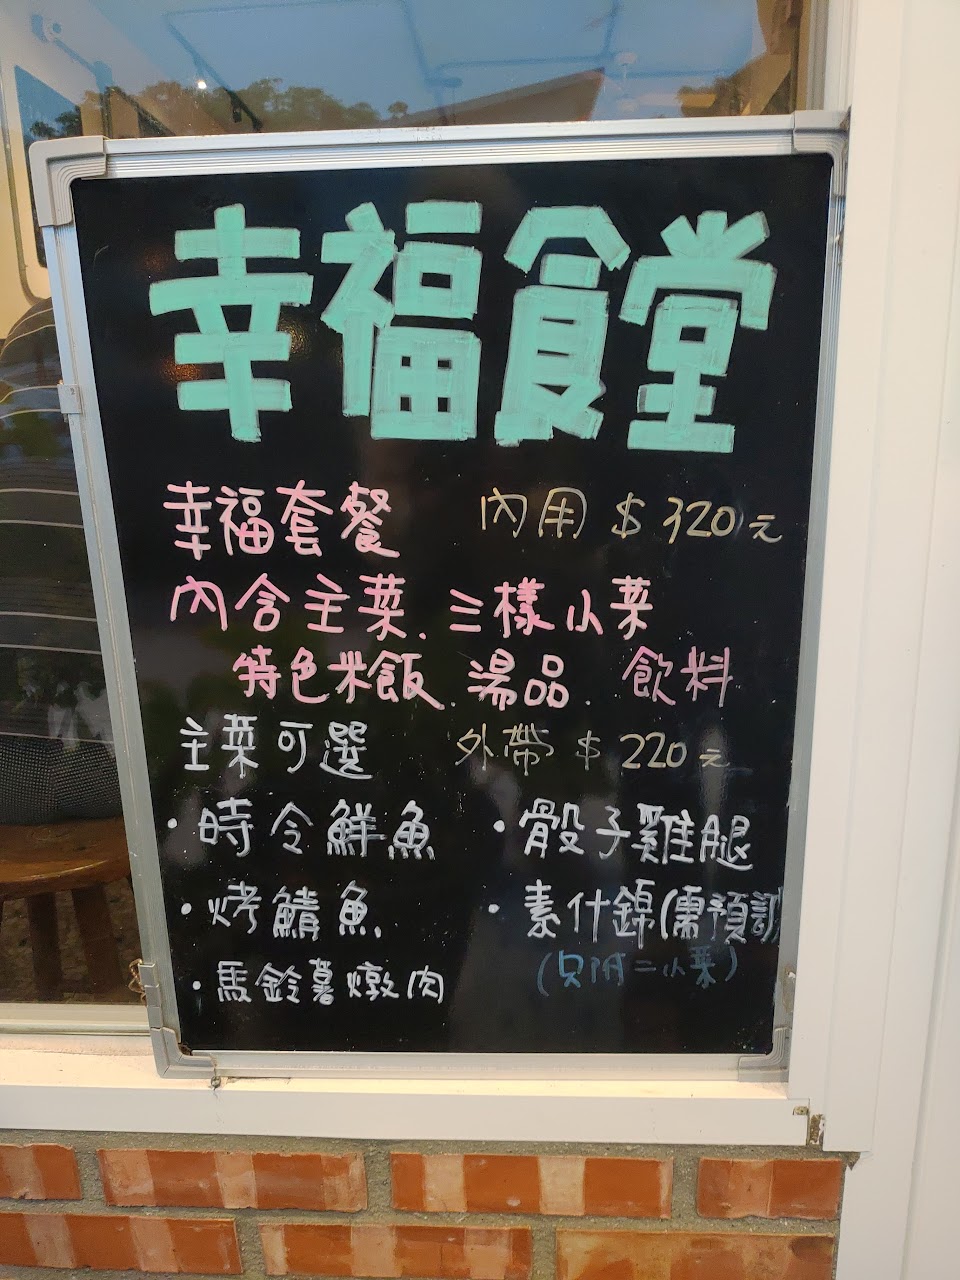 幸福食堂
幸福套餐 內用 $320元
內含主菜.三樣小菜
特色米飯.湯品.飲料
主菜可選 外帶 $220元
·時令鮮魚 ·骰子雞腿
·烤鯖魚 ·素什錦(需預訂)
(只附二小菜)
·馬鈴薯燉肉